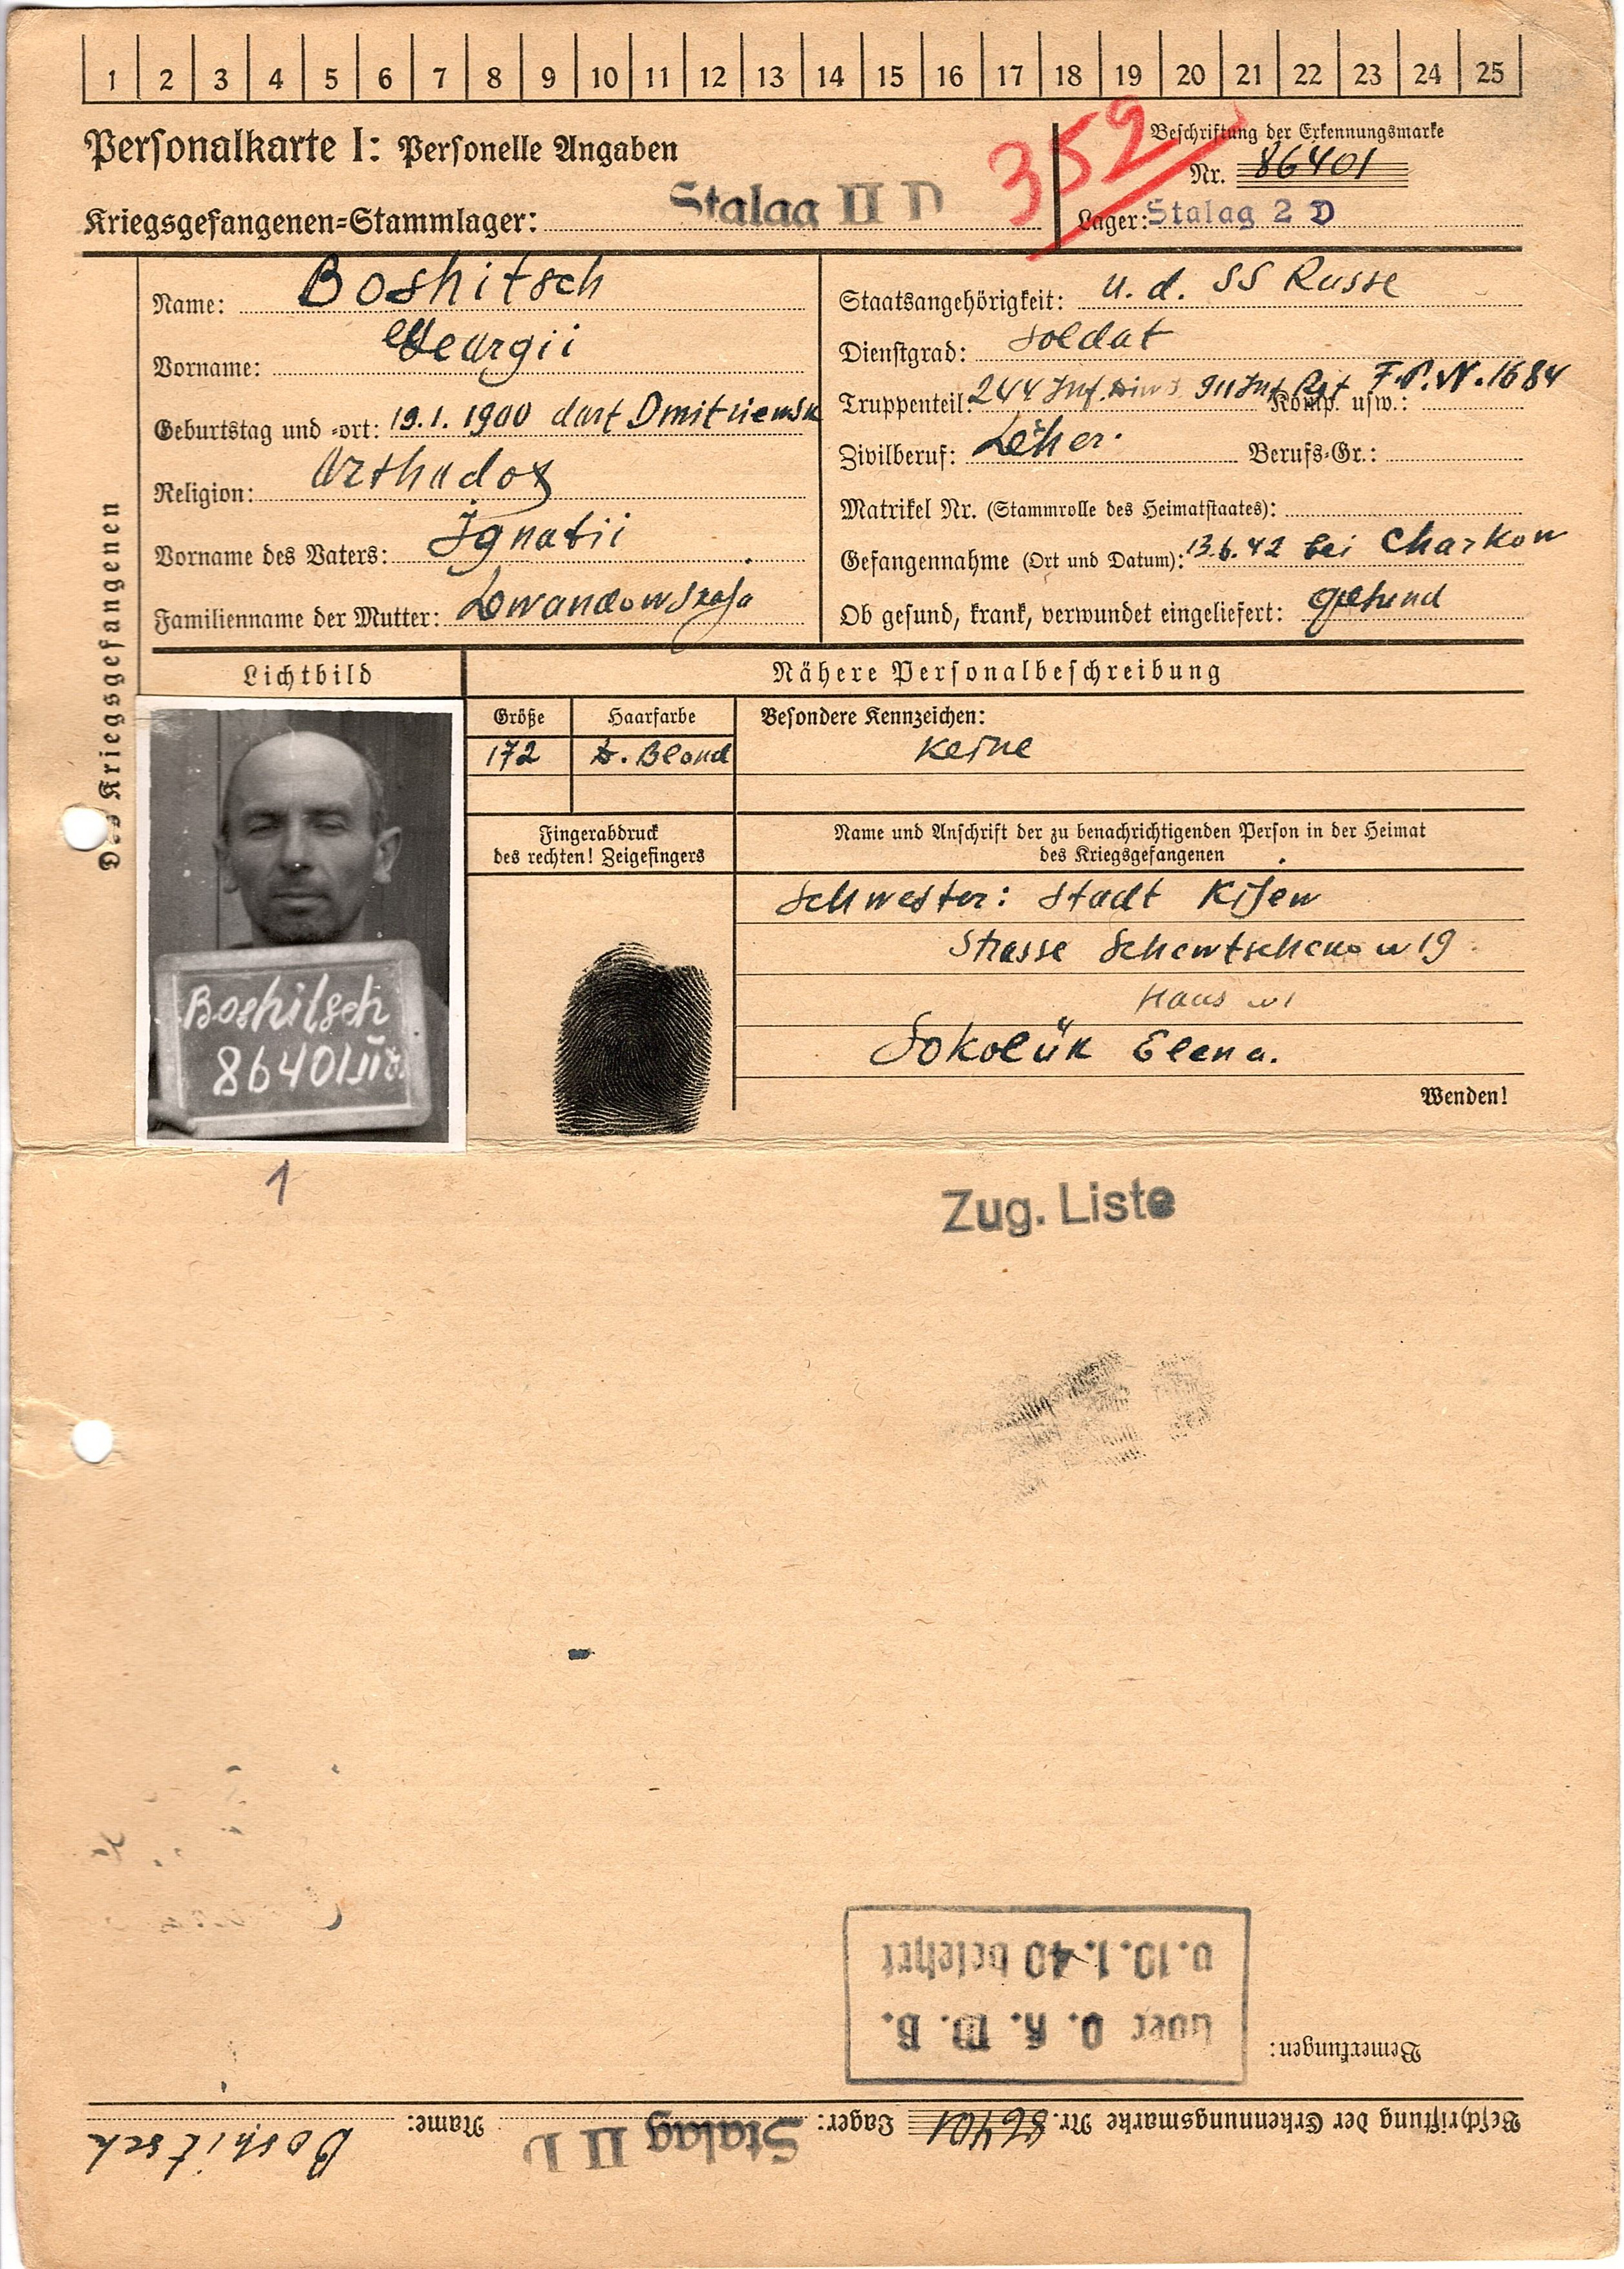 1 2 3 4 5 6 7 8 9 10 11 12 13 14 15 16 17 18 19 20 21 22 23 24 25
Personalkarte I: Personelle Angaben
352
Beschriftung der Erkennungsmarke
Nr. 86401
Kriegsgefangenen-Stammlager: Stalag II D
Lager: Stalag 2 D
Des Kriegsgefangenen
Name: Boshitsch
Vorname: Georgii
Geburtstag und -ort: 19.1.1900 dorf
Religion: Orthodox
Vorname des Vaters: Ignatii
Familienname der Mutter:
Staatsangehörigkeit: U. d. SS Russe
Dienstgrad: Soldat
Truppenteil: 244 Inf. 911 Inf. Rgt F.P.N. 1684 Komp. usw.:
Zivilberuf: Berufs-Gr.:
Matrikel Nr. (Stammrolle des Heimatstaates):
Gefangennahme (Ort und Datum): 13.6.42 bei Charkow
Ob gesund, krank, verwundet eingeliefert: gesund
Lichtbild
Nähere Personalbeschreibung
Größe
172
Haarfarbe
D. Blond
Besondere Kennzeichen:
Keine
Fingerabdruck
des rechten! Zeigefingers
Name und Anschrift der zu benachrichtigenden Person in der Heimat
des Kriegsgefangenen
Schwester: Stadt
Strasse 19
Haus
Sokolük Elena.
Wenden!
Boshitsch
86401
1
Zug. Liste
Bemerkungen:
über O. K. W. B.
v. 10.1.40 belehrt
Beschriftung der Erkennungsmarke Nr. 86401 Lager: Stalag II D Name: Boshitsch